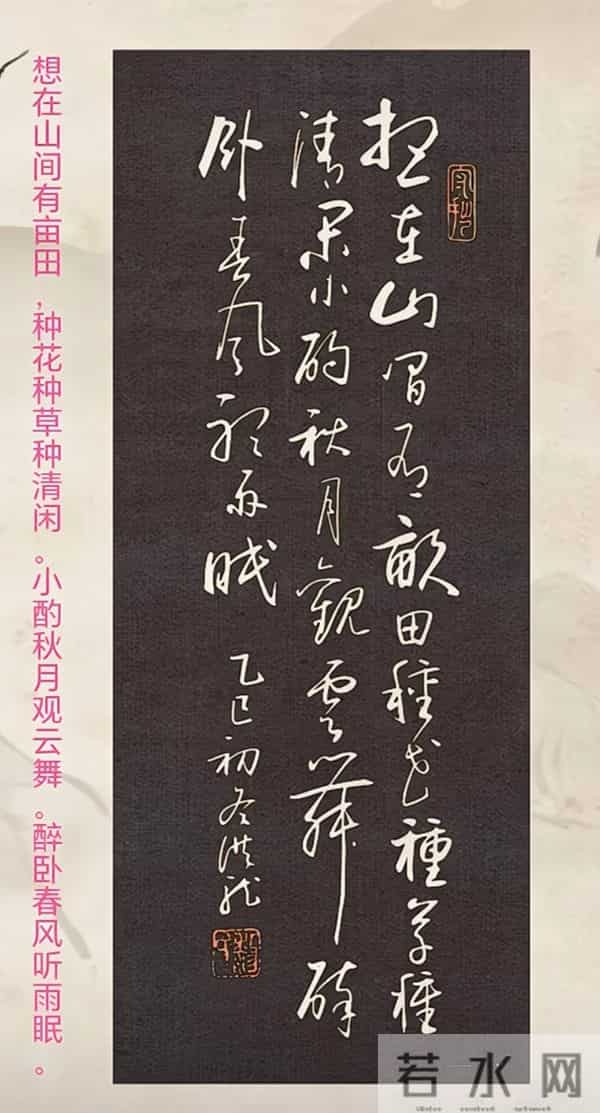 想在山间有亩田，种花种草种清闲。小酌秋月观云舞。醉卧春风听雨眠。
想在山间有畝田種花種草種
清閑小酌秋月觀雲舞醉
卧春风聽雨眠
乙巳初冬洪龙
若水网